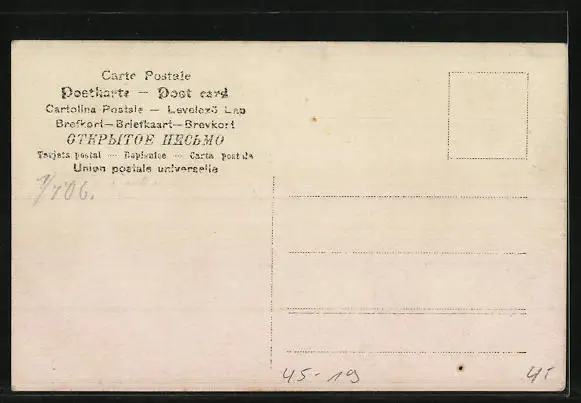 Carte Postale
Postkarte — Post card
Cartolina Postale — Levelező Lap
Brefkort—Briefkaart—Brevkort
ОТКРЫТОЕ ПИСЬМО
Tarjeta postal — Dopisnice — Carta postale
Union postale universelle
1/706.
45-19